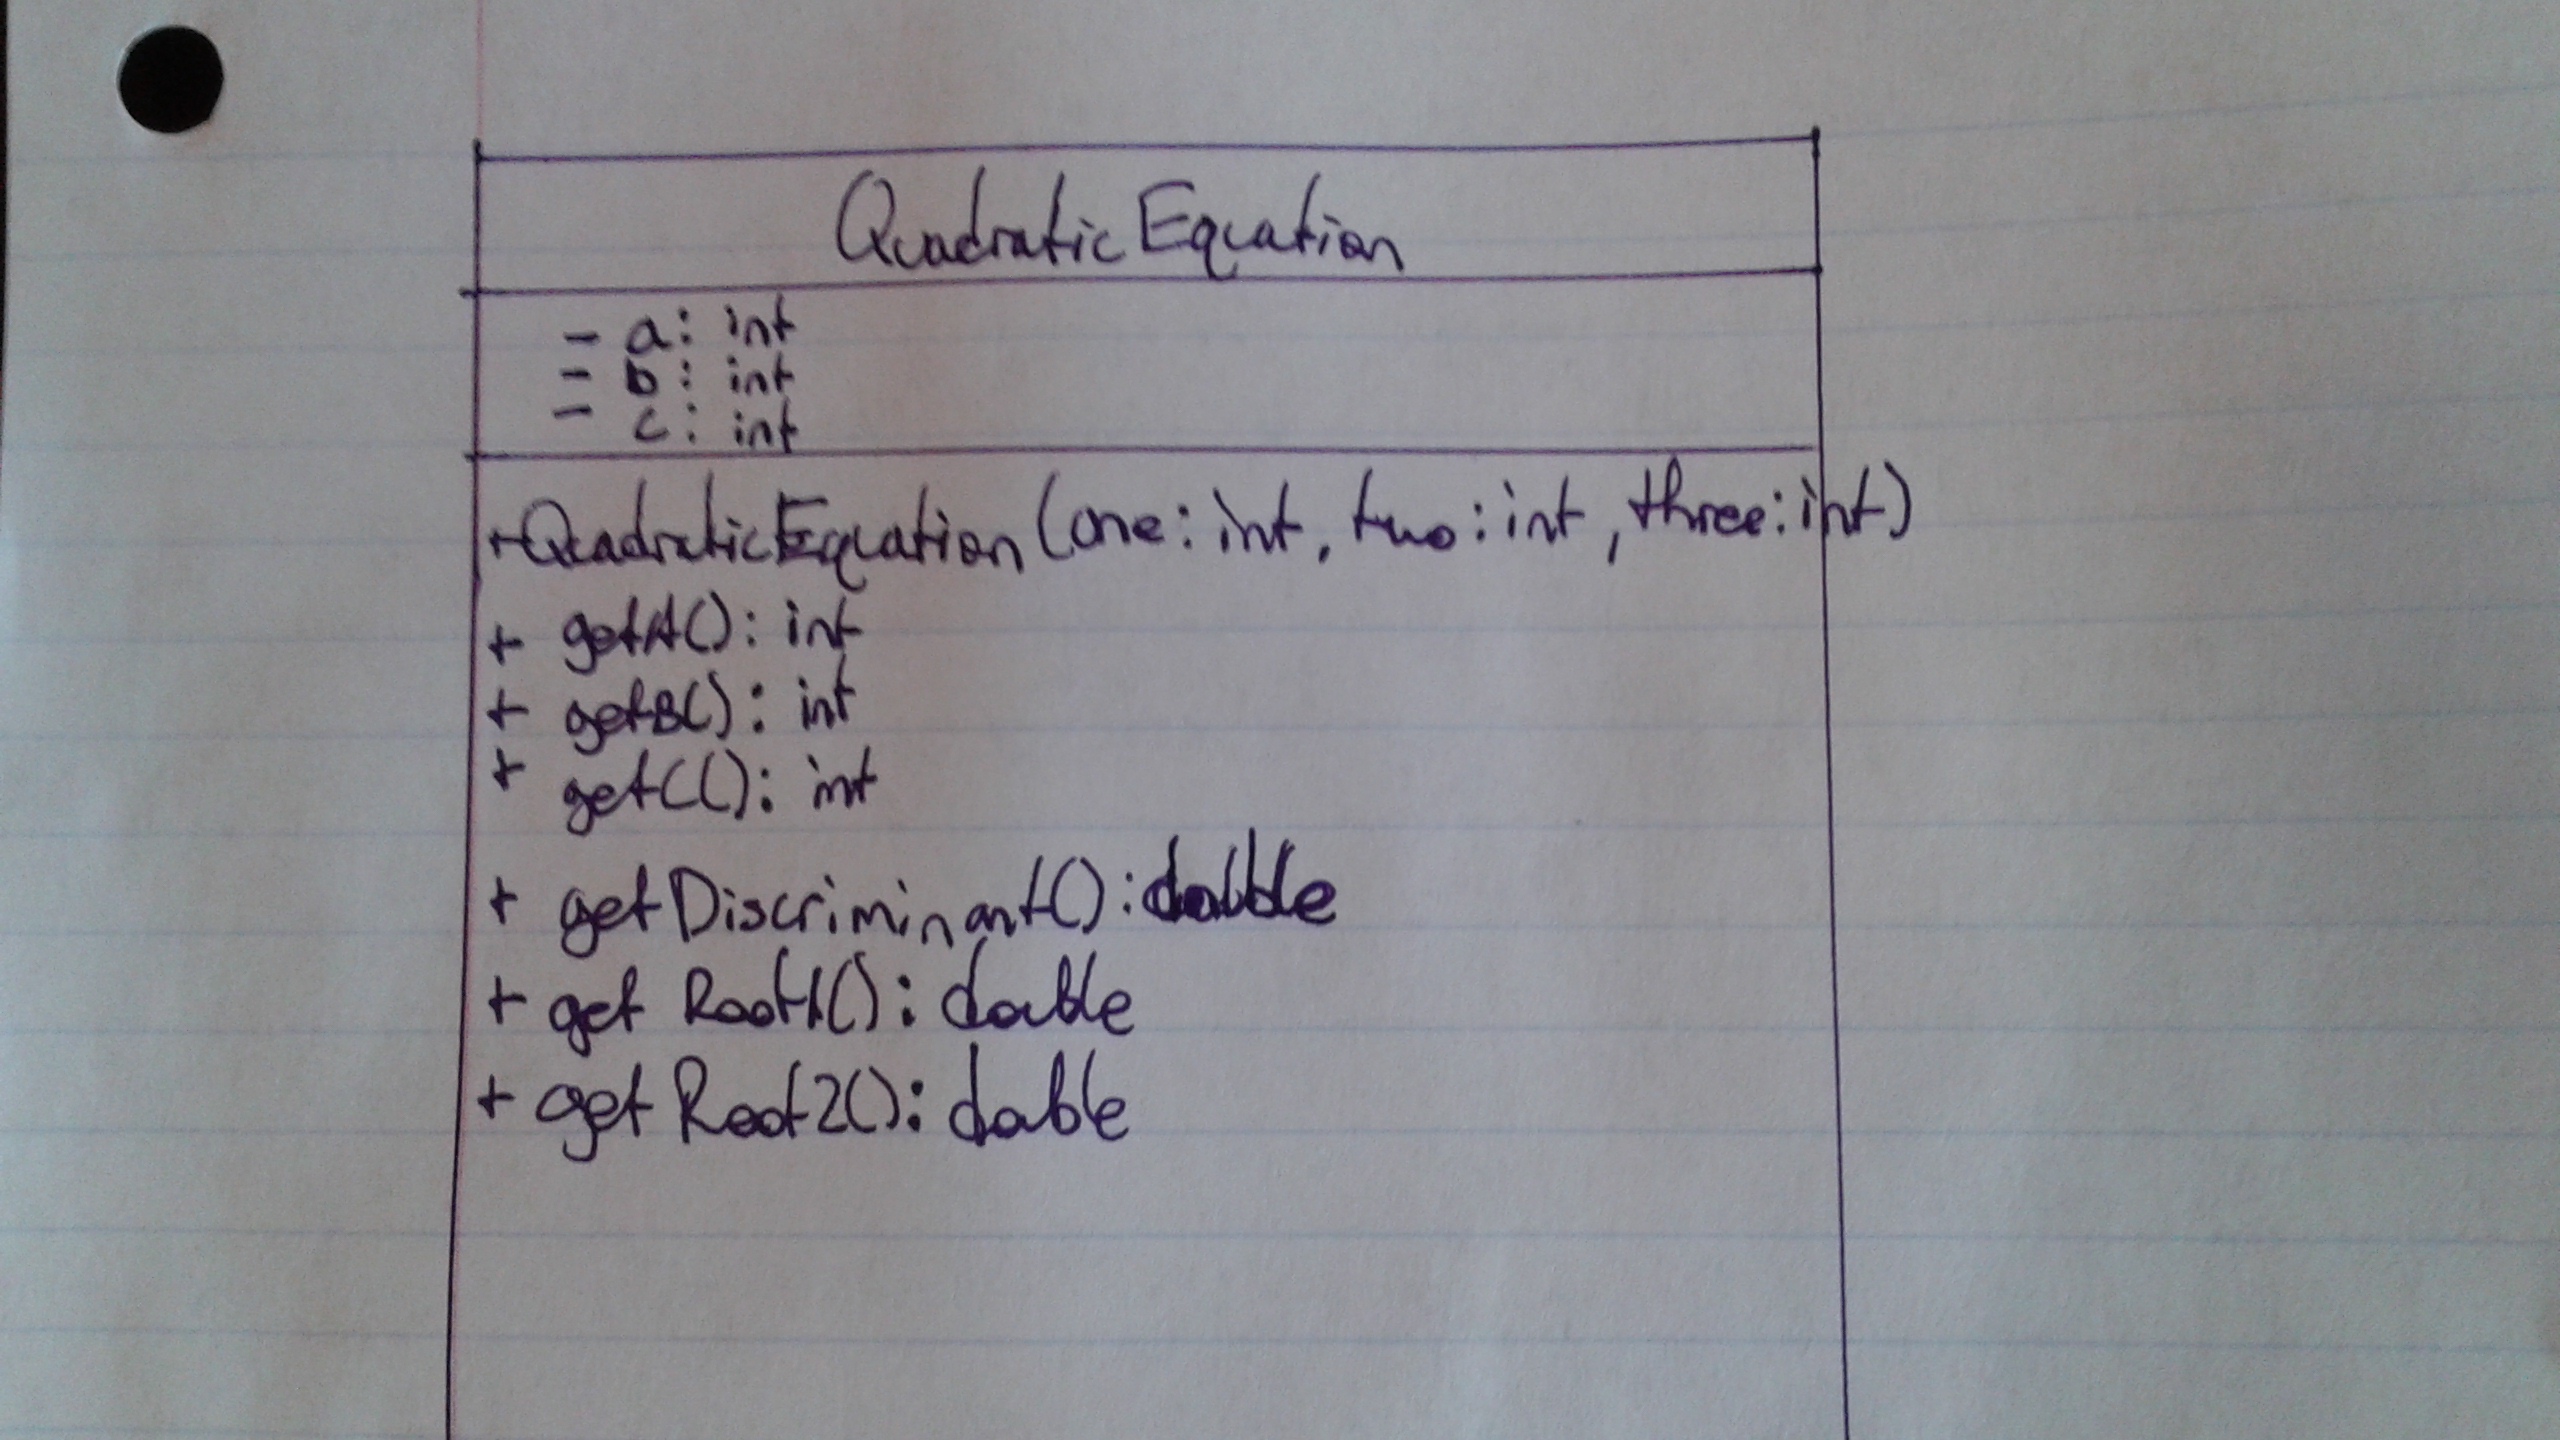 Quadratic Equation
- a: int
- b: int
- c: int
+QuadraticEquation (one: int, two: int, three: int)
+ getA(): int
+ getB(): int
+ getC(): int
+ getDiscriminant(): double
+ get Root1(): double
+ get Root2(): double